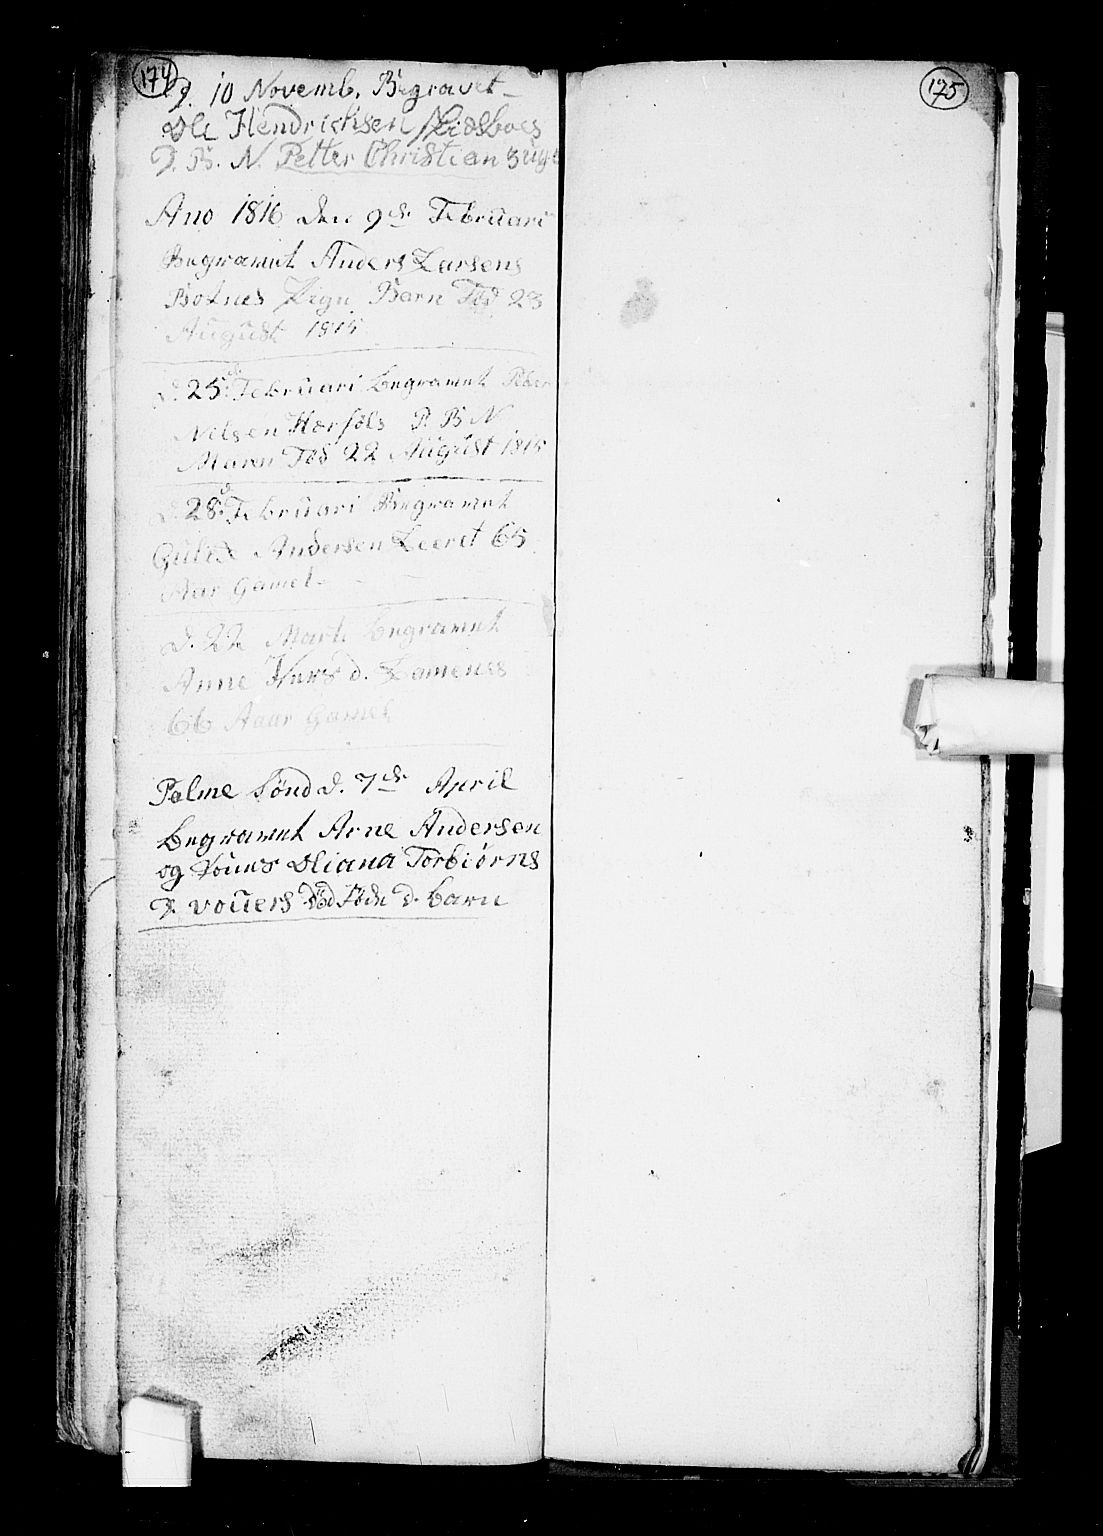 174
175
D. 10 Novemb. Begravet
Ole Hendrichsen
D. B. N. Petter Christian 3 uge
Ano 1816 den 9de Februari
Begravvet Anders Larsens
Botnes Pige Barn Fød 23
August 1815
d. 25de Februari begravvet Peder
Nilsen Hæsøls P. B. N
Mann Fød 22 August 1815
d. 28d Februari Begravvet
Andersen Leeret 65
Aar Gamel
d. 22 Marti begravvet
Anne d.
66 Aaar Gamel
Palme Sønd d. 7de April
begravvet Arne Andersen
og Oliana Torbiørns
D. døde barn